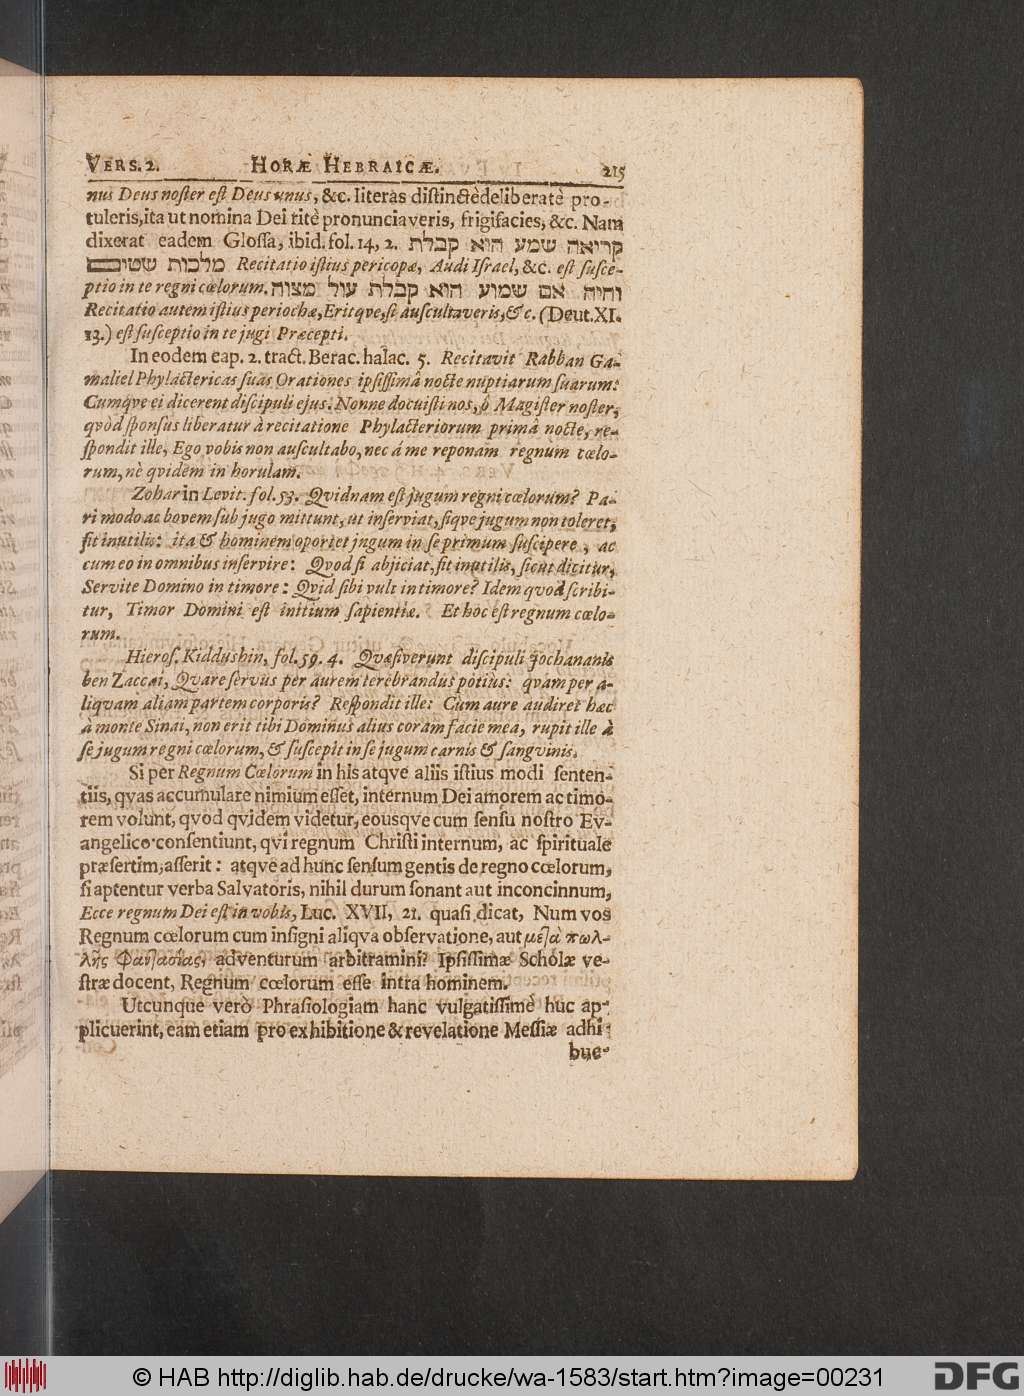 VERS. 2. HORÆ HEBRAICÆ. 215
nus Deus noster est Deus unus, &c. literas distinctè deliberatè pro-
tuleris, ita ut nomina Dei ritè pronunciaveris, frigifacies, &c. Nam
dixerat eadem Glossa, ibid. fol. 14, 2. קריאה שמע הוא קבלת
מלכות שמים Recitatio istius pericopæ, Audi Israel, &c. est susce-
ptio in te regni cœlorum. והיה אם שמוע הוא קבלת עול מצוה
Recitatio autem istius periochæ, Eritqve, si auscultaveris, & c. (Deut. XI.
13.) est susceptio in te jugi Præcepti.
In eodem cap. 2. tract. Berac. halac. 5. Recitavit Rabban Ga-
maliel Phylactericas suas Orationes ipsissimâ nocte nuptiarum suarum:
Cumqve ei dicerent discipuli ejus. Nonne docuisti nos, ô Magister noster,
qvòd sponsus liberatur à recitatione Phylacteriorum primâ nocte, re-
spondit ille, Ego vobis non auscultabo, nec á me reponam regnum cœlo-
rum, nè qvidem in horulam.
Zohar in Levit. fol. 53. Qvidnam est jugum regni cœlorum? Pa-
ri modo ac bovem sub jugo mittunt, ut inserviat, siqve jugum non toleret,
fit inutilis: ita & hominem oportet jugum in se primum suscipere, ac
cum eo in omnibus inservire: Qvod si abjiciat, fit inutilis, sicut dicitur,
Servite Domino in timore: Qvid sibi vult in timore? Idem qvod scribi-
tur, Timor Domini est initium sapientiæ. Et hoc est regnum cœlo-
rum.
Hieros. Kiddushin, fol. 59. 4. Qvæsiverunt discipuli Jochananis
ben Zaccai, Qvare servus per aurem terebrandus potius: qvam per a-
liqvam aliam partem corporis? Respondit ille: Cum aure audiret hæc
à monte Sinai, non erit tibi Dominus alius coram facie mea, rupit ille à
se jugum regni cœlorum, & suscepit in se jugum carnis & sangvinis.
Si per Regnum Cœlorum in his atqve aliis istius modi senten-
tiis, qvas accumulare nimium esset, internum Dei amorem ac timo-
rem volunt, qvod qvidem videtur, eousqve cum sensu nostro Ev-
angelico consentiunt, qvi regnum Christi internum, ac spirituale
præsertim, asserit: atqve ad hunc sensum gentis de regno cœlorum,
si aptentur verba Salvatoris, nihil durum sonant aut inconcinnum,
Ecce regnum Dei est in vobis, Luc. XVII, 21. quasi dicat, Num vos
Regnum cœlorum cum insigni aliqva observatione, aut μετὰ πωλ-
λῆς Φαντασίας, adventurum arbitramini? Ipsissimæ Scholæ ve-
stræ docent, Regnum cœlorum esse intra hominem.
Utcunque verò Phrasiologiam hanc vulgatissimè huc ap-
plicuerint, eam etiam pro exhibitione & revelatione Messiæ adhi-
bue-
© HAB http://diglib.hab.de/drucke/wa-1583/start.htm?image=00231
DFG